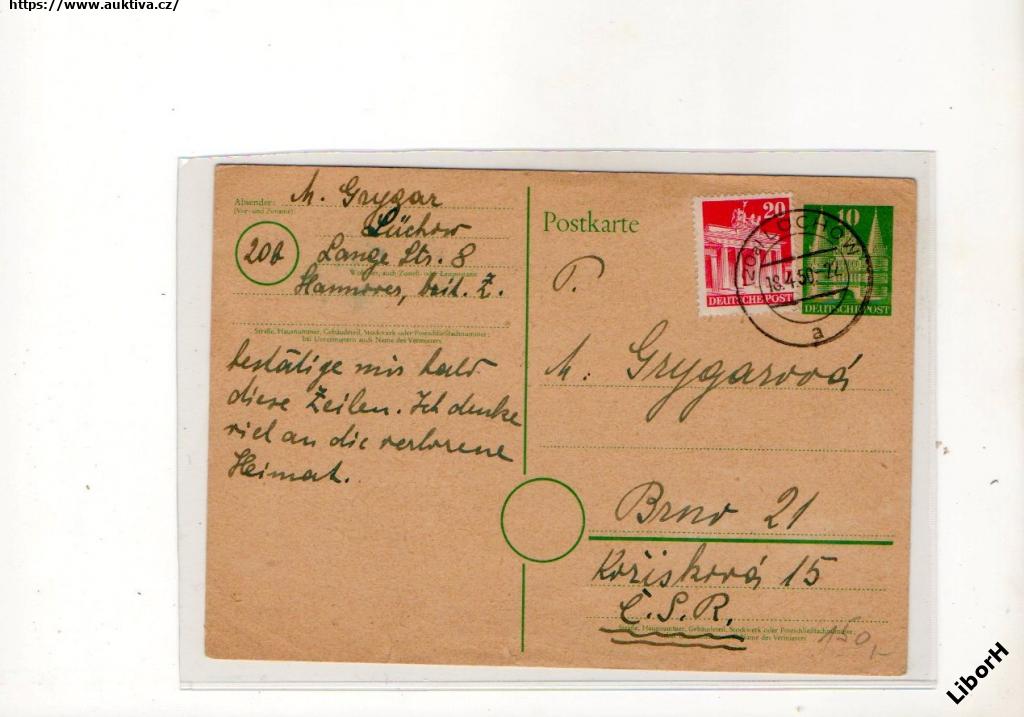 https://www.auktiva.cz/
Absender: M. Grygar
(Vor- und Zuname)
Lüchow
20b
Lange Str. 8
Wohnort, auch Zustell- oder Leitpostamt
Hannover, Z.
Straße, Hausnummer, Gebäudeteil, Stockwerk oder Postschließfachnummer;
bei Untermietern auch Name des Vermieters
bestätige mir bald
diese Zeilen. Ich denke
viel an die verlorene
Heimat.
Postkarte
20
DEUTSCHE POST
10
DEUTSCHE POST
LÜCHOW
18.4.50.
a
P.
M. Grygarová
Brno 21
Kožíšková 15
Č.S.R.
Straße, Hausnummer, Gebäudeteil, Stockwerk oder Postschließfachnummer;
Name des Vermieters
LiborH